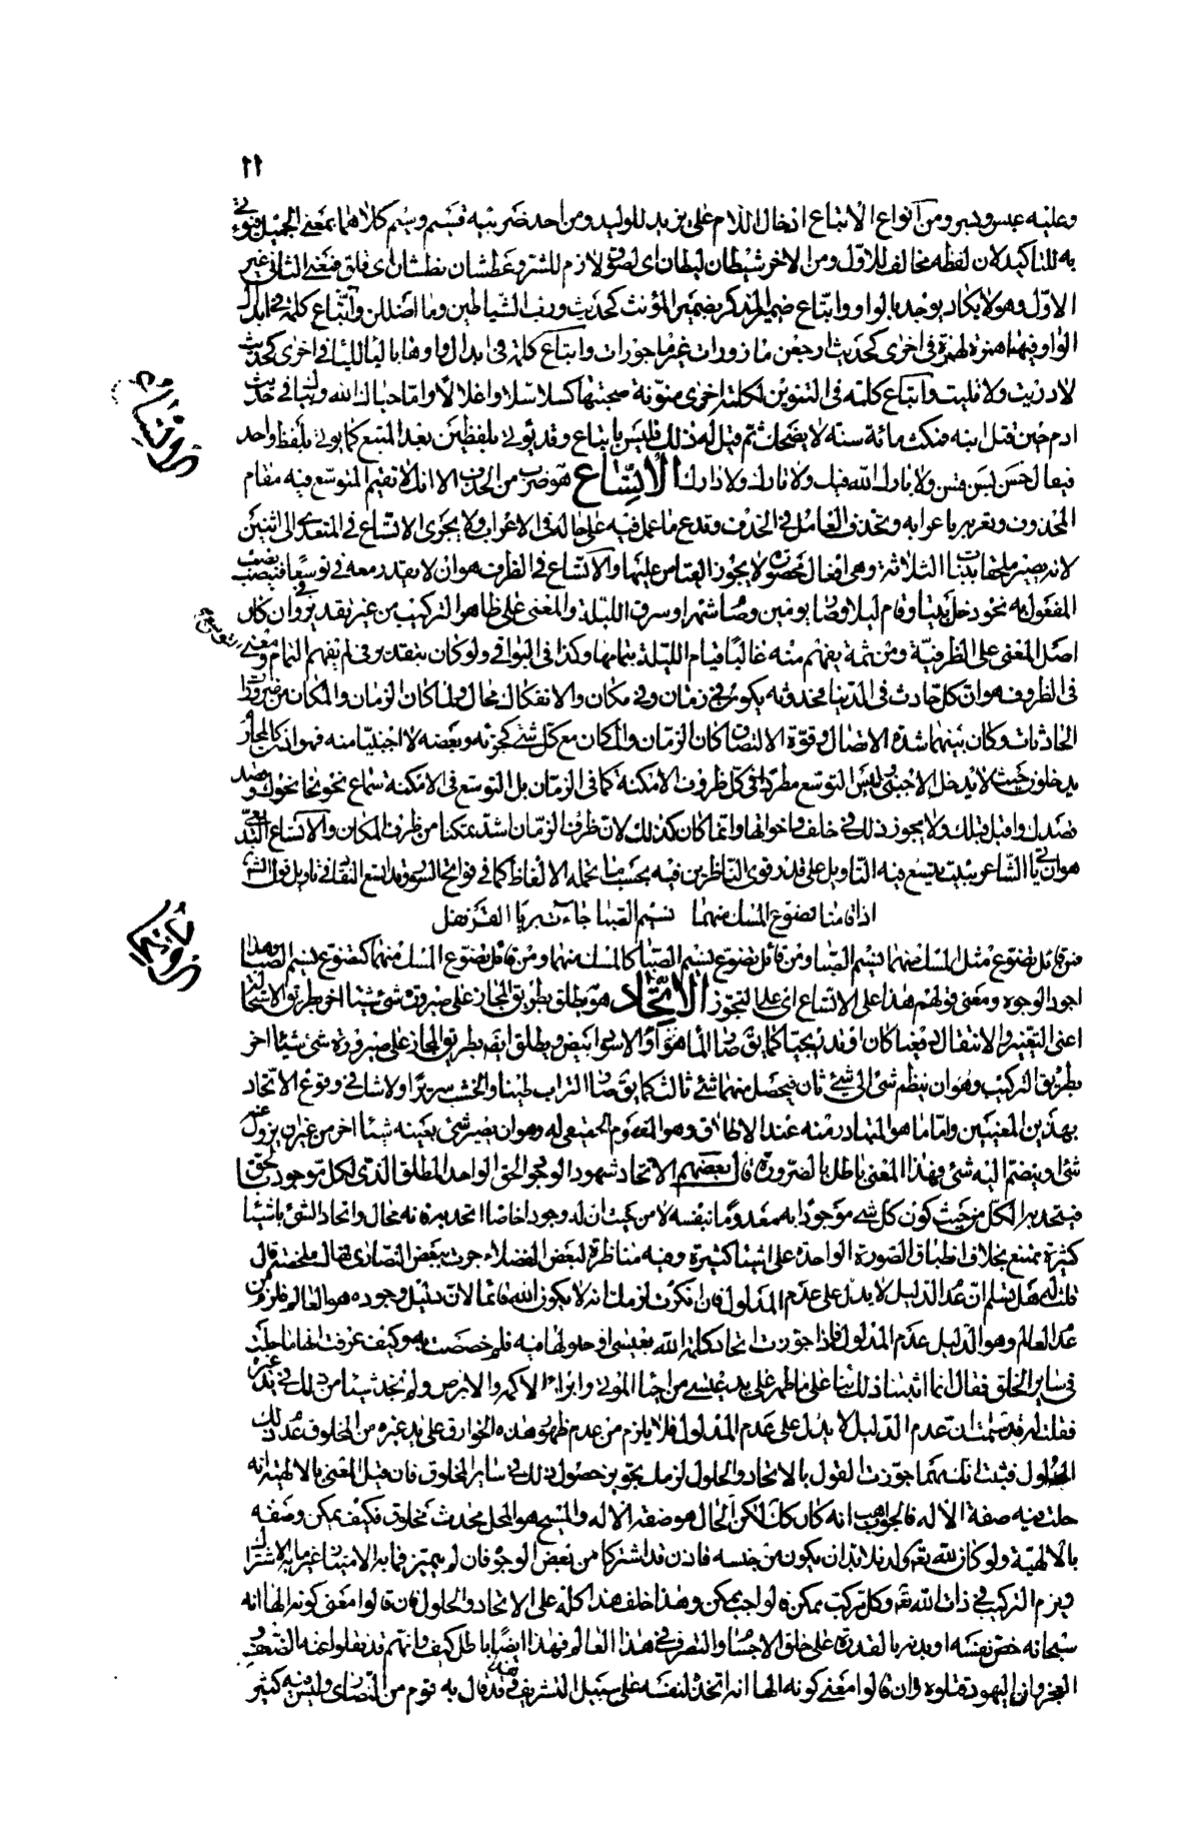 ١١
وعليه عبس وبسر ومن أنواع الاتباع ادخال اللام على يزيد للوليد ومن احد ضربيه قسيم وسيم كلاهما بمعنى الجميل فيؤتى
به للتاكيد لان لفظه مخالف للاول ومن الاخر شيطان ليطان اى لصوق لازم للشر وعطشان نطشان اى قلق فمعنى الثانى غير
الاول وهو لا يكاد يوجد بالواو واتباع ضمير المذكر بضمير المؤنث كحديث ورب الشياطين وما اضللن واتباع كلمة فى ابدال
الواو فيها همزة لهمزة فى اخرى كحديث ارجعن مازورات غير ماجورات واتباع كلمة فى ابدال واوها بالياء للياء فى اخرى كحديث
لا دريت ولا تليت واتباع كلمة فى التنوين لكلمة اخرى منونة صحبتها كسلاسلا واغلالا واما حياك الله وبياك فى حديث
ادم حين قتل ابنه فمكث مائة سنة لا يضحك ثم قيل له ذلك فليس باتباع وقد يؤتى بلفظين بعد المتبع كما يؤتى بلفظ واحد
فيقال حسن بسن قسن ولا بارك الله فيك ولا تارك ولا دارك الاتساع هو ضرب من الحذف الا انك لا تقيم المتوسع فيه مقام
المحذوف وتعربه باعرابه وتحذف العامل فى الحذف وتدع ما عمل فيه على حاله فى الاعراب ولا يجرى الاتساع فى المتعدى الى اثنين
لانه يصير ملحقا ببنات الثلاثة وهى افعال محصورة لا يجوز القياس عليها والاتساع فى الظرف هو ان لا يقدر معه فى توسعا فينصب نصب
المفعول به نحو دخل بيتا وقام ليلا وصام يومين وصام شهرا وسرق الليلة والمعنى على ظاهر التركيب من غير تقدير فى وان كان
اصل المعنى على الظرفية ومن ثمة يفهم منه غالبا قيام الليلة بتمامها وكذا فى البواقى ولو كان بتقدير فى لم يفهم التمام ومعنى التوسع
فى الظروف هو ان كل حادث فى الدنيا فحدوثه يكون فى زمان وفى مكان والانفكاك محال ولما كان الزمان والمكان من ضرورات
الحادثات وكان بينهما شدة الاتصال وقوة الالتصاق كان الزمان والمكان مع كل شئ كجزئه وبعضه لا اجنبيا منه فهو اذن كالمحارم
يدخلون حيث لا يدخل الاجنبى وليس التوسع مطردا فى كل ظروف الامكنة كما فى الزمان بل التوسع فى الامكنة سماع نحو نحا نحوك وقصد
قصدك واقبل قبلك ولا يجوز ذلك فى خلف واخواتها وانما كان كذلك لان ظرف الزمان اشد تمكنا من ظرف المكان والاتساع البديعى
هو ان ياتى الشاعر ببيت يتسع فيه التاويل على قدر قوى الناظرين فيه بحسب ما تحمله الالفاظ كما فى فواتح السور وقد اتسع النقاد فى تاويل قول الشاعر
اذا قامتا تضوع المسك منهما نسيم الصبا جاءت بريا القرنفل
فمن قائل تضوع مثل المسك منهما نسيم الصبا ومن قائل تضوع نسيم الصبا كالمسك منهما ومن قائل تضوع المسك منهما كتضوع نسيم الصبا وهذا
اجود الوجوه ومعنى قولهم هذا على الاتساع اى على التجوز الاتحاد هو يطلق بطريق المجاز على صيرورة شئ شيئا اخر بطريق الاستحالة
اعنى التغيير والانتقال دفعيا كان او تدريجيا كما يق صار الماء هواء والاسود ابيض ويطلق ايضا بطريق المجاز على صيرورة شئ شيئا اخر
بطريق التركيب وهو ان ينظم شئ الى شئ ثان فيحصل منهما شئ ثالث كما يق صار التراب طينا والخشب سريرا ولا شك فى وقوع الاتحاد
بهذين المعنيين واما ما هو المتبادر منه عند الاطلاق وهو المفهوم الحقيقى له وهو ان يصير شئ بعينه شيئا اخر من غير ان يزول عنه
شئ او ينضم اليه شئ فهذا المعنى باطل بالضرورة قال بعضهم الاتحاد شهود الوجود الحق الواحد المطلق الذى لكل موجود بحق
فيتحد به الكل من حيث كون كل شئ موجودا به معدوما بنفسه لا من حيث ان له وجودا خاصا اتحد به فانه محال واتحاد الشئ باشياء
كثيرة ممتنع بخلاف انطباق الصورة الواحدة على اشياء كثيرة وفيه مناظرة لبعض الفضلاء جرت ببعض النصارى تقال ملخصة قال
قلت له هل تسلم ان عدم الدليل لا يدل على عدم المدلول فان انكرت لزمك انه لا يكون الله قائما لان دليل وجوده هو العالم فلزم من
عدم العالم وهو الدليل عدم المدلول فاذا جوزت اتحاد كلمة الله بعيسى او حلولها فيه فلم خصصت به وكيف عرفت انها ما حلت
فى سائر الخلق فقال انما اثبتنا ذلك بناء على ما ظهر على يد عيسى من احياء الموتى وابراء الاكمه والابرص ولم نجد شيئا من ذلك فى يد غيره
فقلت له قد سلمت ان عدم الدليل لا يدل على عدم المدلول فلا يلزم من عدم ظهور هذه الخوارق على يد غيره من المخلوق عدم ذلك
الحلول فثبت انك مهما جوزت القول بالاتحاد والحلول لزمك بتجويز حصول ذلك فى سائر المخلوق فان قيل المعنى بالالهية انه
حلت فيه صفة الاله فالجواب هب انه كان كك لكن الحال هو صفة الاله والمسيح هو المحل محدث مخلوق فكيف يمكن وصفه
بالالهية ولو كان لله تعالى ولد فلا بد ان يكون من جنسه فاذن قد اشتركا من بعض الوجوه فان لم يتميز فما به الامتياز غير ما به الاشتراك
ويلزم التركيب فى ذات الله تعالى وكل مركب ممكن فالواجب ممكن وهذا خلف هذا كله على الاتحاد والحلول فان قالوا معنى كونه الها انه
سبحانه خص نفسه او بدنه بالقدرة على خلق الاجسام والتصرف فى هذا العالم فهذا ايضا باطل كيف وانهم قد نقلوا عنه الضعف و
العجز وان اليهود قتلوه وان قالوا معنى كونه الها انه اتخذ لنفسه على سبيل التشريف فهذا قد قال به قوم من النصارى وليس فيه كثير